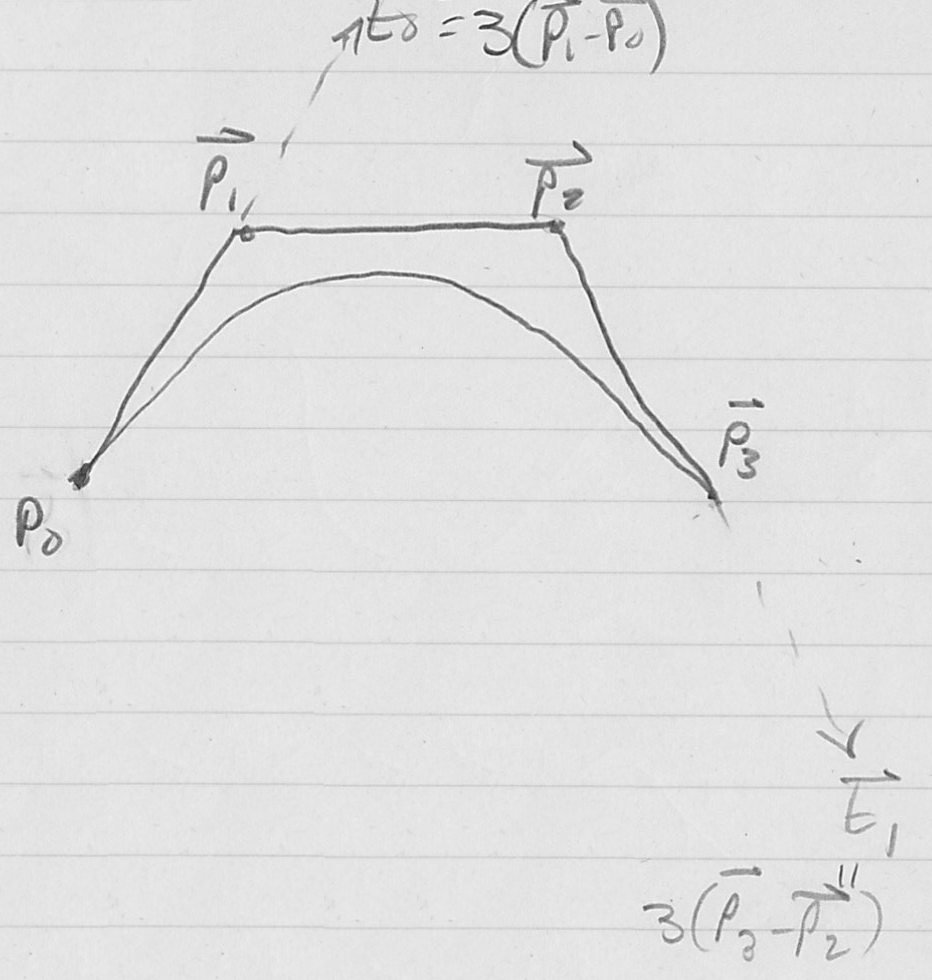 t₀ = 3(p⃗₁ - p⃗₀)
p⃗₁
p⃗₂
p⃗₃
p₀
t⃗₁
"
3(p⃗₃ - p⃗₂)